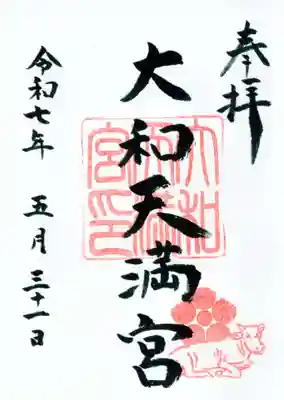 奉拝
大和天満宮
大和天満宮印
令和七年 五月 三十一日